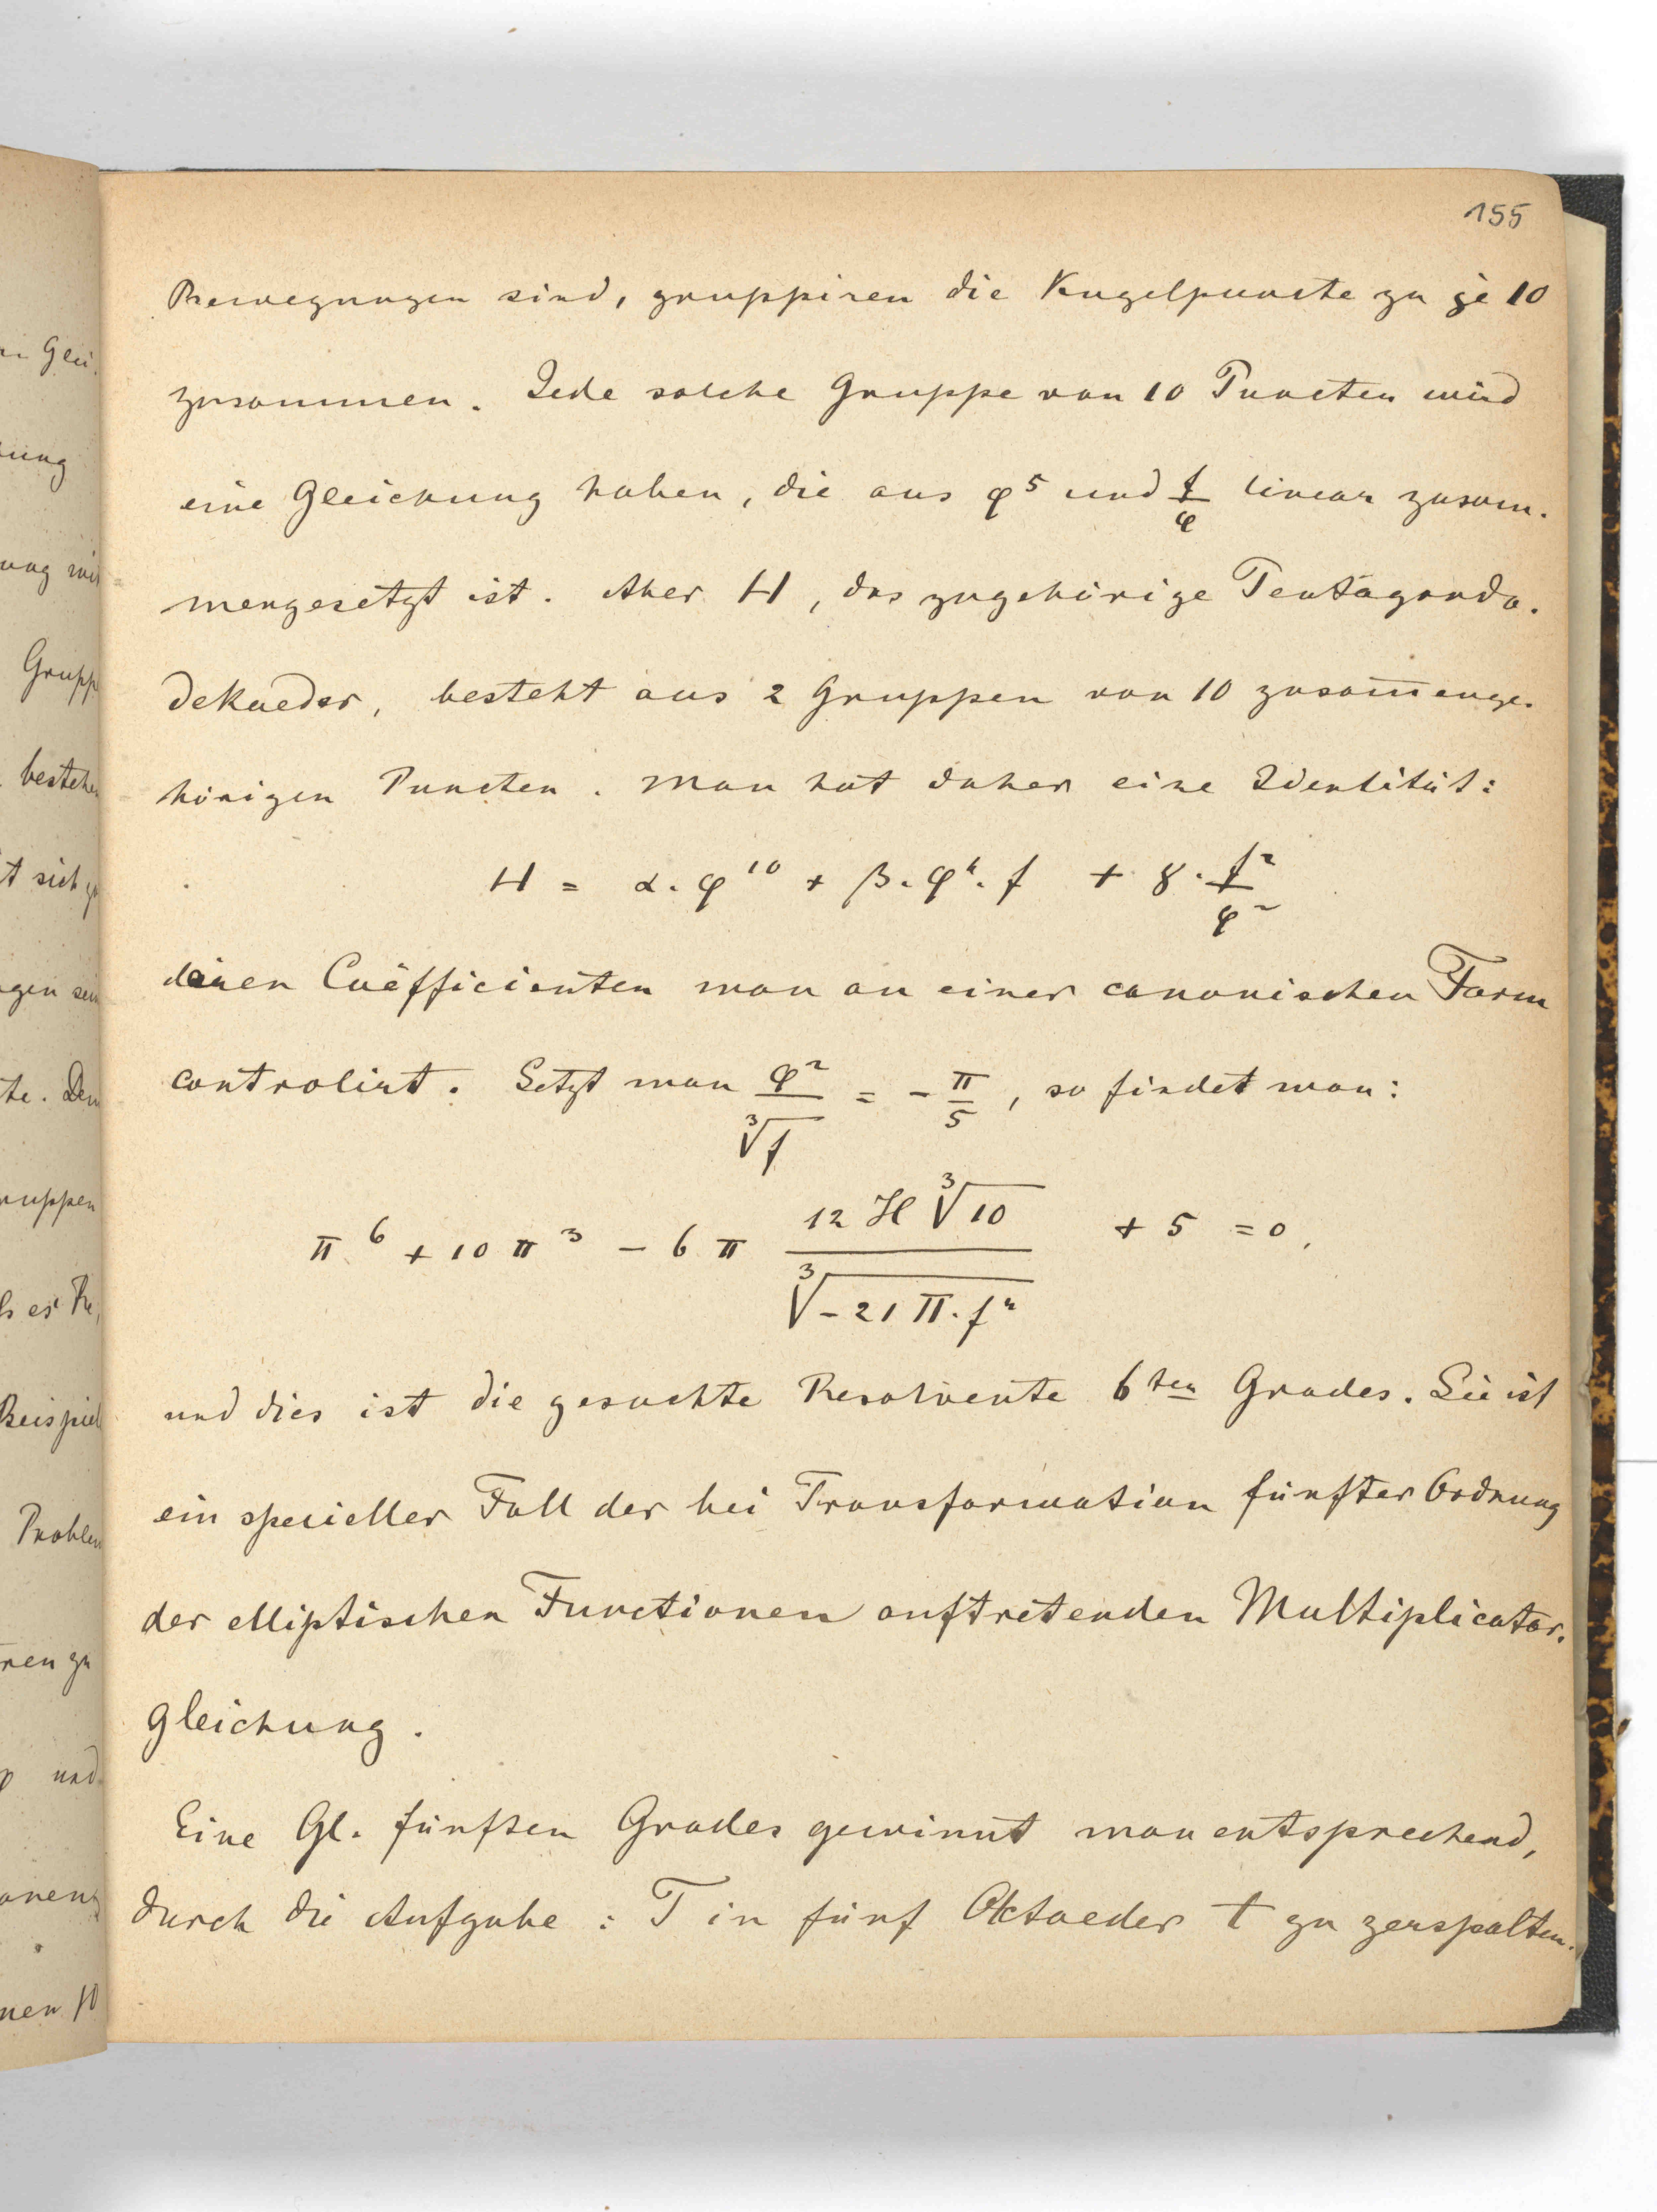 155
Bewegungen sind, gruppiren die Kugelpuncte zu je 10
zusammen. Jede solche Gruppe von 10 Puncten wird
eine Gleichung haben, die aus φ^5 und f/φ linear zusam-
mengesetzt ist. Aber H, das zugehörige Pentagondo-
dekaeder, besteht aus 2 Gruppen von 10 zusam̅enge-
hörigen Puncten. Man hat daher eine Identität:
H = α. φ^10 + β. φ^4. f + γ. f^2/φ^2
deren Coëfficienten man an einer canonischen Form
controlirt. Setzt man φ^2/∛f = - π/5, so findet man:
π^6 + 10 π^3 - 6 π 12 H ∛10 / ∛(-21 Π. f^2) + 5 = 0,
und dies ist die gesuchte Resolvente 6ten Grades. Sie ist
ein specieller Fall der bei Transformation fünfter Ordnung
der elliptischen Functionen auftretenden Multiplicator-
gleichung.
Eine Gl. fünften Grades gewinnt man entsprechend,
durch die Aufgabe: T in fünf Oktaeder t zu zerspalten.
n Glei-
ung
ung mit
Grupp
bestehe
t sich
gen sein
te. Den
ruppen
Beispiel
Problem
ren zu
φ und
nen 10